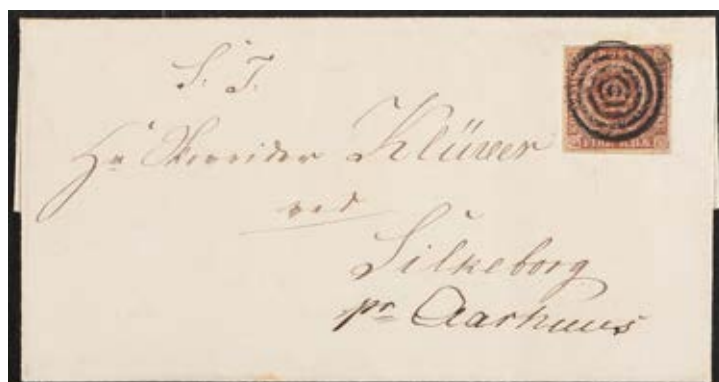 S. T.
Hr Skovrider Klüwer
ved
Silkeborg
pr Aarhuus
FIRE R.B.S.